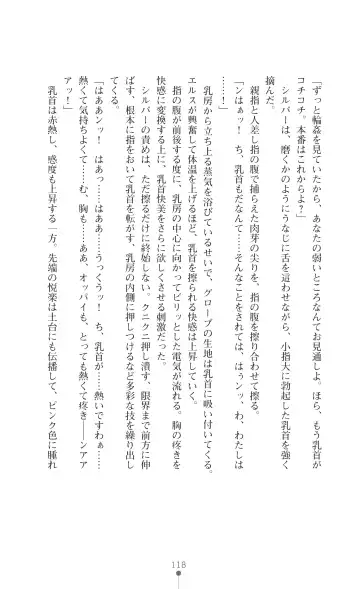 「ずっと輪姦を見ていたから、あなたの弱いところなんてお見通しよ。ほら、もう乳首が
コチコチ。本番はこれからよ？」
　シルバーは、磨くかのようにうなじに舌を這わせながら、小指大に勃起した乳首を強く
摘んだ。
　親指と人差し指の腹で捕らえた肉芽の尖りを、指の腹を擦り合わせて擦る。
「ンはぁッ！　ち、乳首もだなんて……そんなことをされては、はぅンッ、わ、わたしは
……！」
　乳房から立ち上る蒸気を浴びているせいで、グローブの生地は乳首に吸い付いてくる。
エルスが興奮して体温を上げるほど、乳首を擦られる快感は上昇していく。
　指の腹が前後する度に、乳房の中心に向かってビリッとした電気が流れる。胸の疼きを
快感に変換する上に、乳首快美をさらに欲しくさせる刺激だった。
　シルバーの責めは、ただ擦るだけに終始しない。クニクニ押し潰す、限界まで前方に伸
ばす、根本に指をおいて乳首を転がす、乳房の内側に押しつけるなど多彩な技を繰り出し
てくる。
「はああンッ！　はぁっ……はああ……うっくうッ！　ち、乳首が……熱いですわぁ……
熱くて気持ちよくて……む、胸も……ああ、オッパイも、とっても熱くて疼き――ンアア
アッ！」
　乳首は赤熱し、感度も上昇する一方。先端の悦楽は土台にも伝播して、ピンク色に腫れ
118